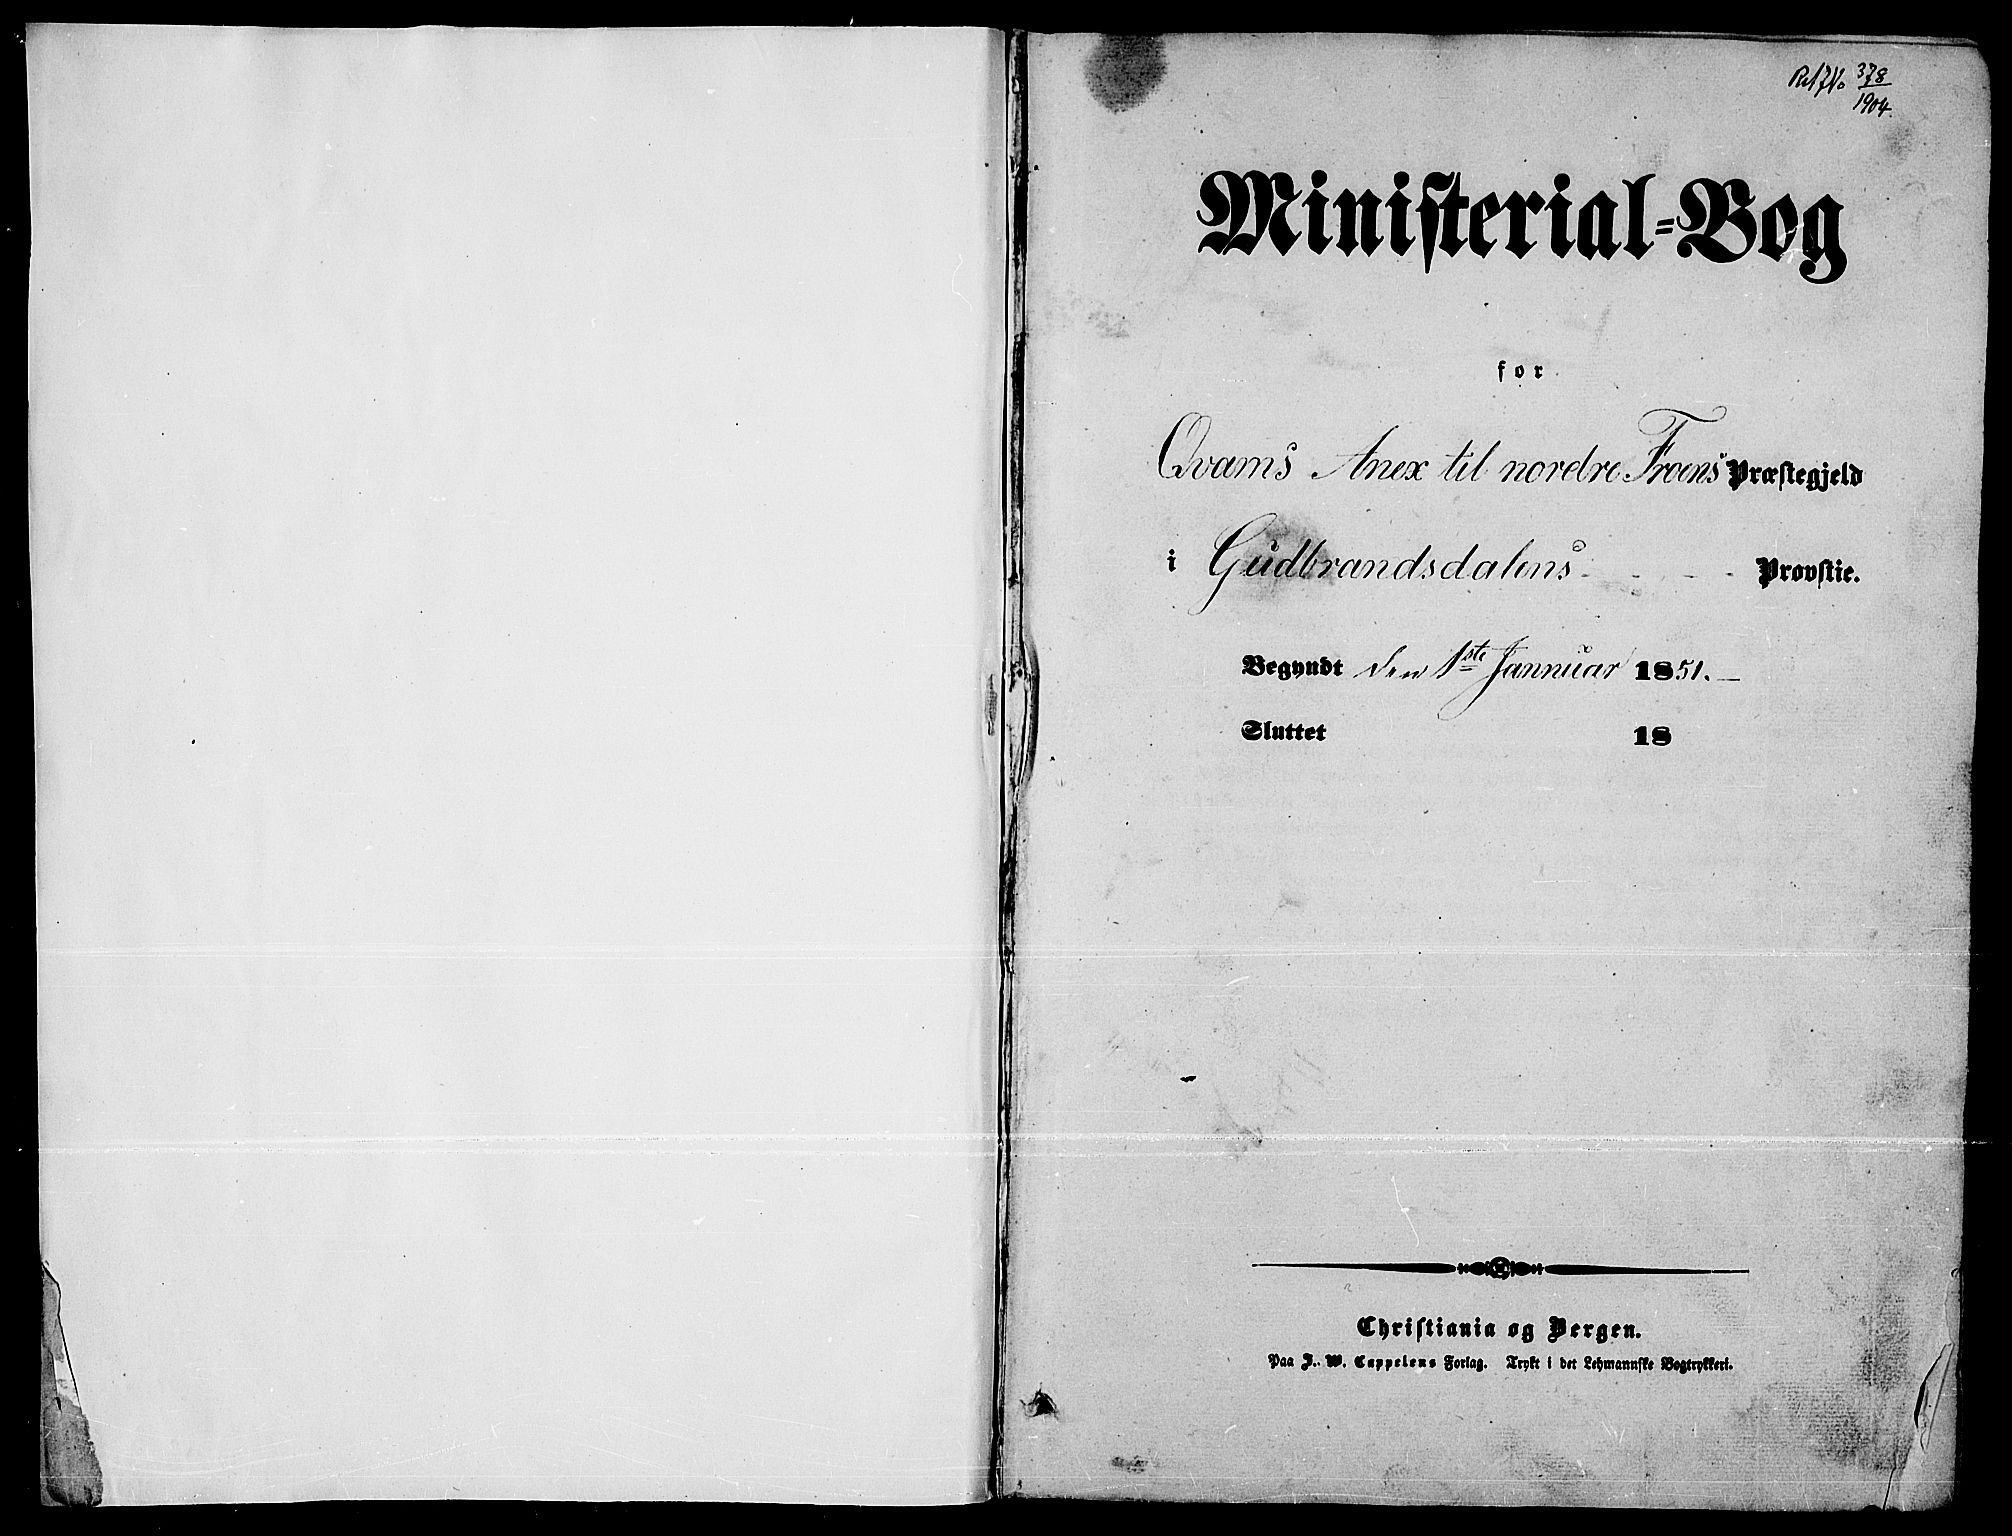 378
1904.
Ministerial-Bog
for
Qvams Anex til nordre Froens Præstegjeld
i Gudbrandsdalens Provstie.
Begyndt den 1ste Januar 1851.
Sluttet 18
Christiania og Bergen.
Paa J. W. Cappelens Forlag. Trykt i det Lehmannske Bogtrykkeri.